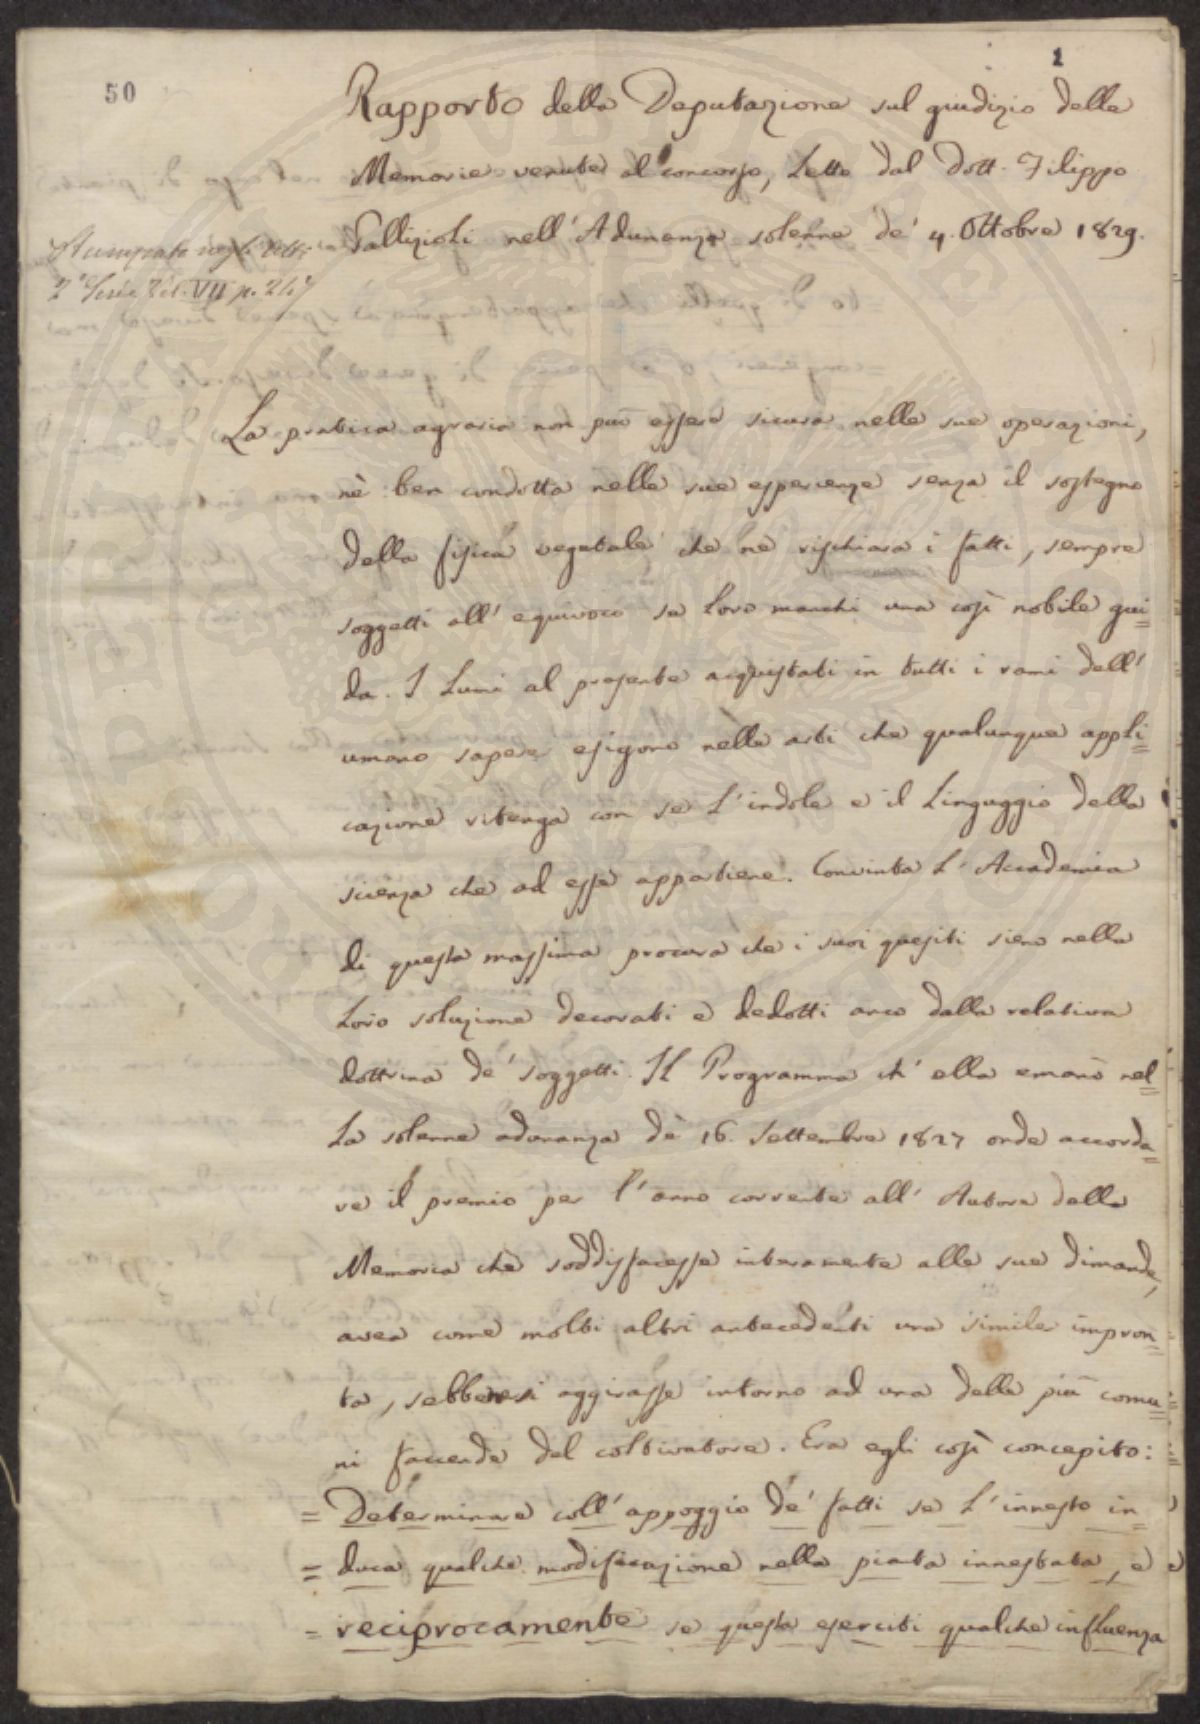 50
1
Rapporto della Deputazione sul giudizio delle
Memorie venute al concorso, Letto dal Dott. Filippo
Gallizioli nell' Adunanza solenne de' 4. Ottobre 1829.
Stampato negli Atti
2ª Serie Vol. VII p. 247
La pratica agraria non può essere sicura nelle sue operazioni,
nè ben condotta nelle sue esperienze senza il sostegno
della fisica vegetale che ne rischiara i fatti, sempre
soggetti all' equivoco se loro manchi una così nobile gui=
da. I Lumi al presente acquistati in tutti i rami dell'
umano sapere esigono nelle arti che qualunque appli=
cazione ritenga con se l'indole e il Linguaggio della
scienza che ad essa appartiene. Convinta L'Accademia
di questa massima procura che i suoi quesiti sieno nella
Loro soluzione decorati e dedotti anco dalla relativa
dottrina de' soggetti. Il Programma ch' ella emanò nel=
La solenne adunanza de 16. Settembre 1827 onde accorda=
re il premio per l' anno corrente all' Autore della
Memoria che soddisfacesse interamente alle sue dimande,
avea come molti altri antecedenti una simile impron=
ta, sebbene si aggirasse intorno ad una delle più comu=
ni faccende del coltivatore. Era egli così concepito:
= Determinare coll' appoggio de' fatti se L' innesto in=
= duca qualche modificazione nella pianta innestata, e
= reciprocamente se questa eserciti qualche influenza